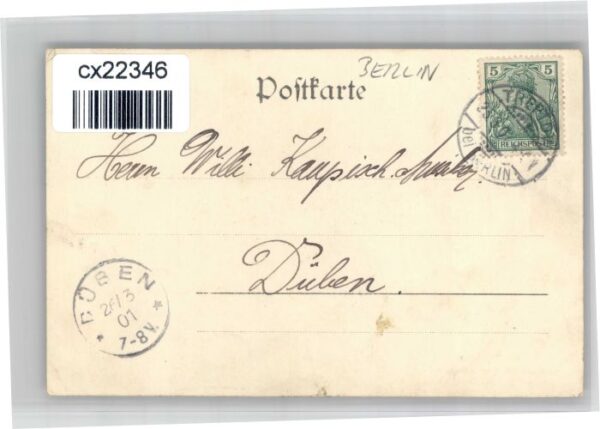 cx22346
BERLIN
Postkarte
5 5
REICHSPOST
TREPTOW
(bei BERLIN)
Herrn Willi Kaupisch
Düben.
DÜBEN
26/3
01
7-8V.